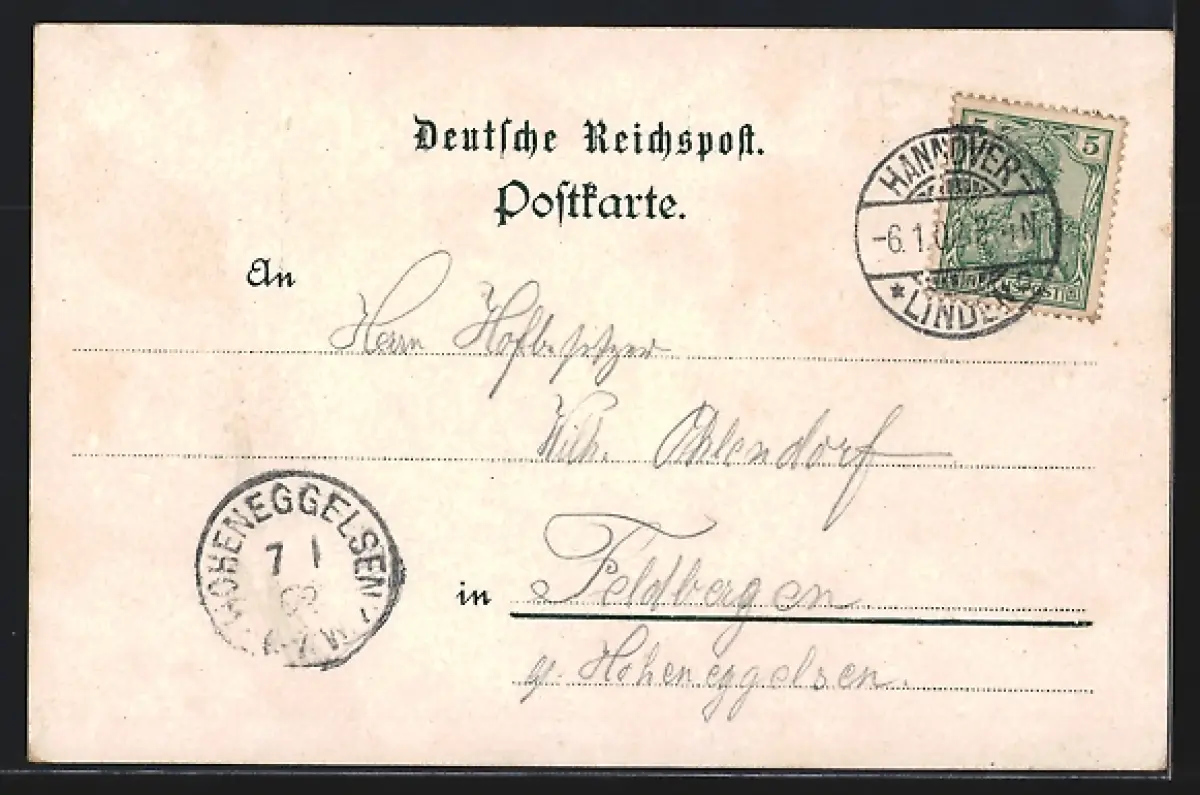 Deutsche Reichspost.
Postkarte.
5
HANNOVER-
-6.1.0
N
* LINDEN
REICHSPOST
An
Herrn Hofbesitzer
Wilh. Ohlendorf
HOHENEGGELSEN
7 1
in Feldbergen
p. Hoheneggelsen.